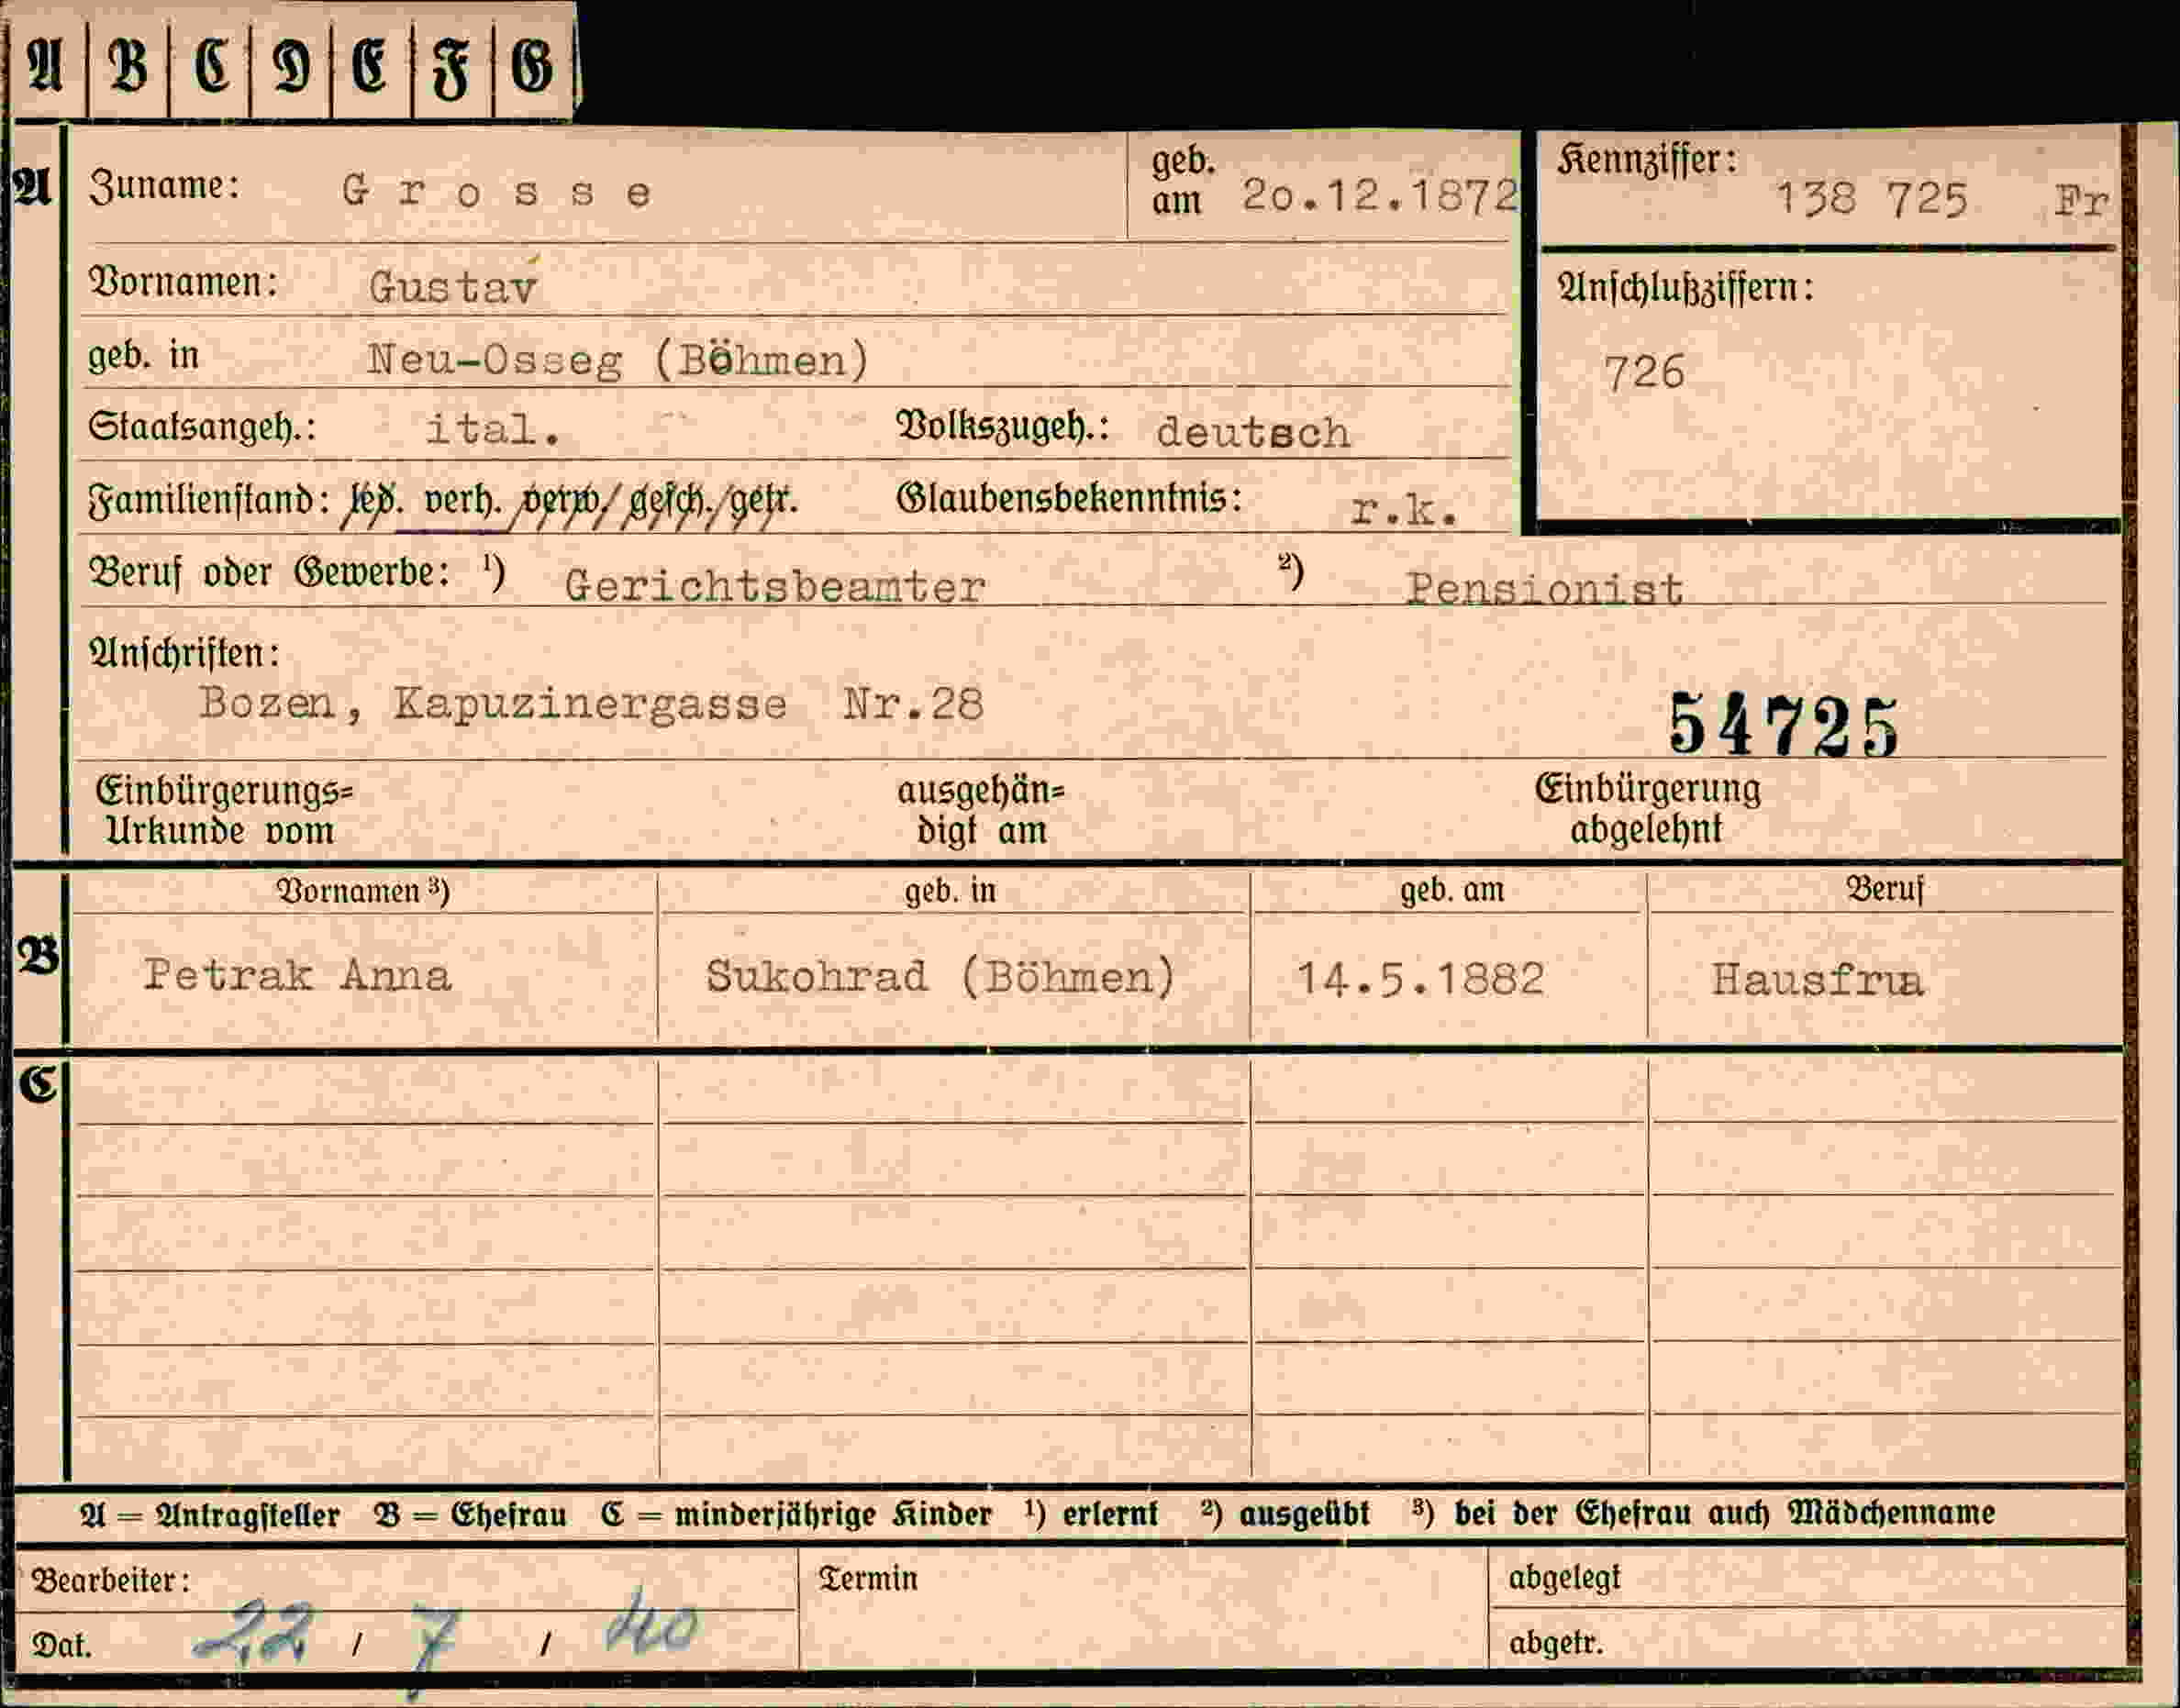 A B C D E F G
A Zuname: Grosse geb. am 20.12.1872 Kennziffer: 138 725 Fr
Vornamen: Gustav Anschlußziffern:
geb. in Neu-Osseg (Böhmen) 726
Staatsangeh.: ital. Volkszugeh.: deutsch
Familienstand: led. verh. verw. gesch. getr. Glaubensbekenntnis: r.k.
Beruf oder Gewerbe: ¹) Gerichtsbeamter ²) Pensionist
Anschriften:
Bozen, Kapuzinergasse Nr.28 54725
Einbürgerungs= ausgehän= Einbürgerung
Urkunde vom digt am abgelehnt
Vornamen ³) geb. in geb. am Beruf
B Petrak Anna Sukohrad (Böhmen) 14.5.1882
C
A = Antragsteller B = Ehefrau C = minderjährige Kinder ¹) erlernt ²) ausgeübt ³) bei der Ehefrau auch Mädchenname
Bearbeiter: Termin abgelegt
Dat. 22 / 7 / 40 abgetr.